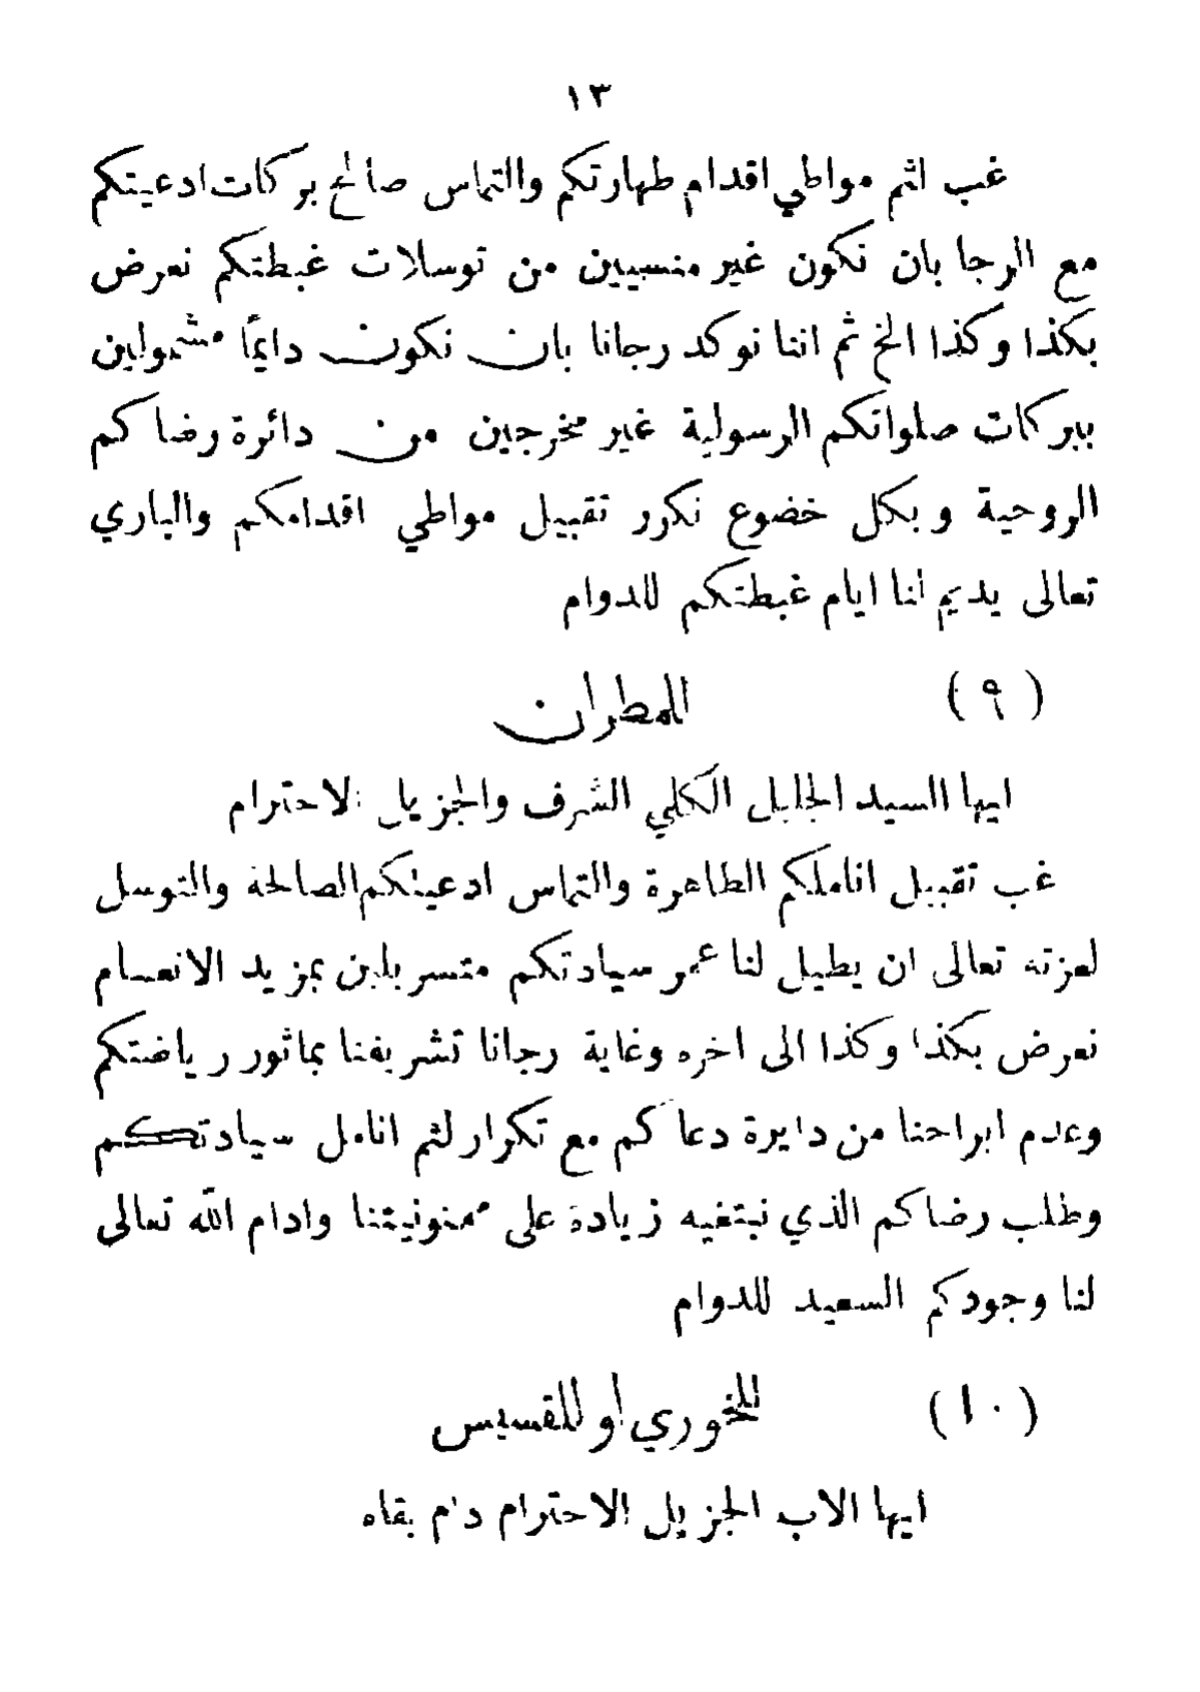 ١٣
غب لثم مواطي اقدام طهارتكم والتماس صالح بركات ادعيتكم
مع الرجا بان نكون غير منسيين من توسلات غبطتكم نعرض
بكذا وكذا الخ ثم اننا نوكد رجانا بان نكون دايمًا مشمولين
ببركات صلواتكم الرسولية غير مخرجين من دائرة رضاكم
الروحية وبكل خضوع نكرر تقبيل مواطي اقدامكم والباري
تعالى يديم لنا ايام غبطتكم للدوام
(٩) للمطران
ايها السيد الجليل الكلي الشرف والجزيل الاحترام
غب تقبيل اناملكم الطاهرة والتماس ادعيتكم الصالحة والتوسل
لعزته تعالى ان يطيل لنا عمر سيادتكم متسربلين بمزيد الانعام
نعرض بكذا وكذا الى اخره وغاية رجانا تشريفنا بماثور رياضتكم
وعدم ابراحنا من دايرة دعاكم مع تكرار لثم انامل سيادتكم
وطلب رضاكم الذي نبتغيه زيادة على ممنونيتنا وادام الله تعالى
لنا وجودكم السعيد للدوام
(١٠) للخوري او للقسيس
ايها الاب الجزيل الاحترام دام بقاه